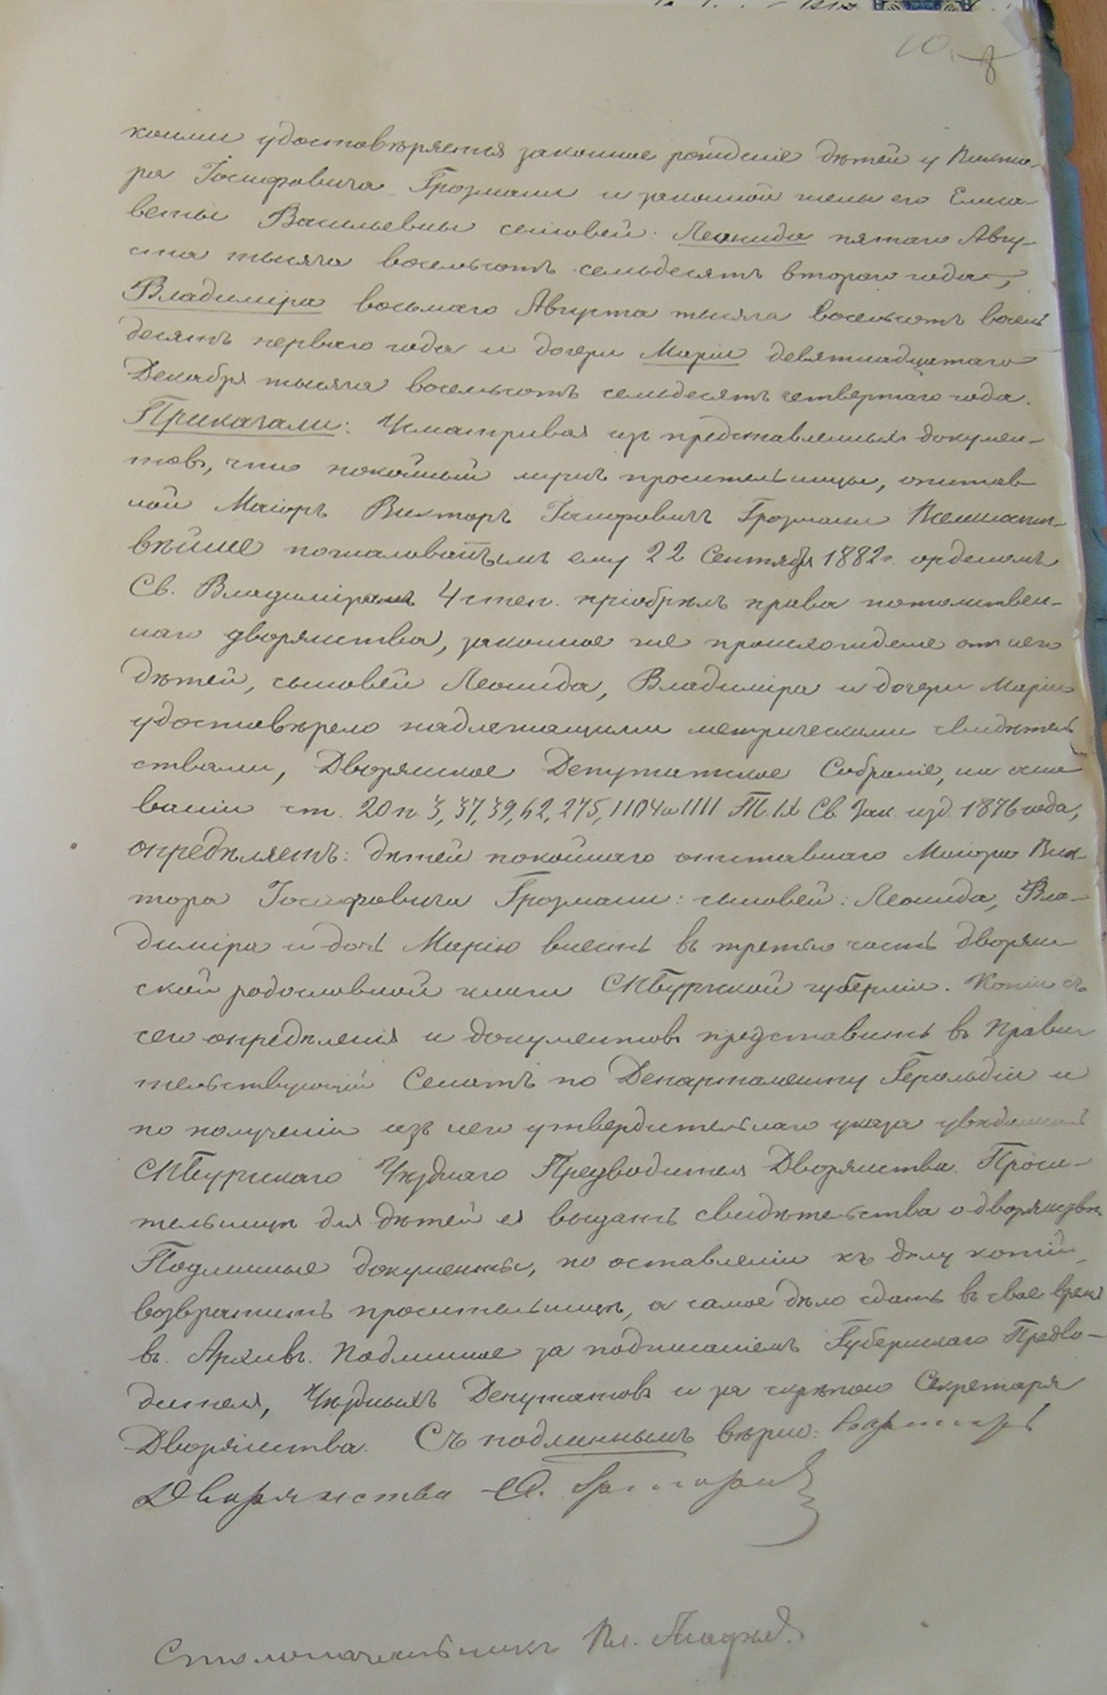 коими удостовѣряется законное рожденіе дѣтей у Викто-
ра Іосифовича Грозмани и законной жены его Елиса-
веты Васильевны сыновей: Леонида пятаго Авгу-
ста тысяча восемьсотъ семьдесятъ втораго года,
Владиміра восьмаго Августа тысяча восемьсотъ восемь
десятъ перваго года и дочери Маріи девятнадцатаго
Декабря тысяча восемьсотъ семьдесятъ четвертаго года.
Приказали: Усматривая изъ представленныхъ докумен-
товъ, что покойный мужъ просительницы, отстав-
ной Маіоръ Викторъ Іосифовичъ Грозмани Всемилости-
вѣйше пожалованнымъ ему 22 Сентября 1882 г. орденомъ
Св. Владиміромъ 4 степ. пріобрѣлъ права потомствен-
наго дворянства, законное же происхожденіе отъ него
дѣтей, сыновей Леонида, Владиміра и дочери Маріи
удостовѣрено надлежащими метрическими свидѣтель
ствами, Дворянское Депутатское Собраніе, на осно
ваніи ст. 20 п. 3, 37, 39, 62, 275, 1104 и 1111 Т. IX Св. Зак. изд. 1876 года,
опредѣляетъ: дѣтей покойнаго отставнаго Маіора Вик-
тора Іосифовича Грозмани: сыновей: Леонида, Вла-
диміра и дочь Марію внести въ третью часть дворян
ской родословной книги СПбургской губерніи. Копіи съ
сего опредѣленія и документовъ представить въ Прави
тельствующій Сенатъ по Департаменту Герольдіи и
по полученіи изъ него утвердительнаго указа увѣдомить
СПбургскаго Уѣзднаго Предводителя Дворянства. Проси-
тельницѣ для дѣтей ея выдать свидѣтельства о дворянствѣ
Подлинные документы, по оставленіи къ дѣлу копій,
возвратить просительницѣ, а самое дѣло сдать въ свое время
въ Архивъ. Подлинное за подписаніемъ Губернскаго Предво-
дителя, Уѣздныхъ Депутатовъ и за скрѣпою Секретаря
Дворянства. Съ подлиннымъ вѣрно: Секретарь
Дворянства
Столоначальникъ